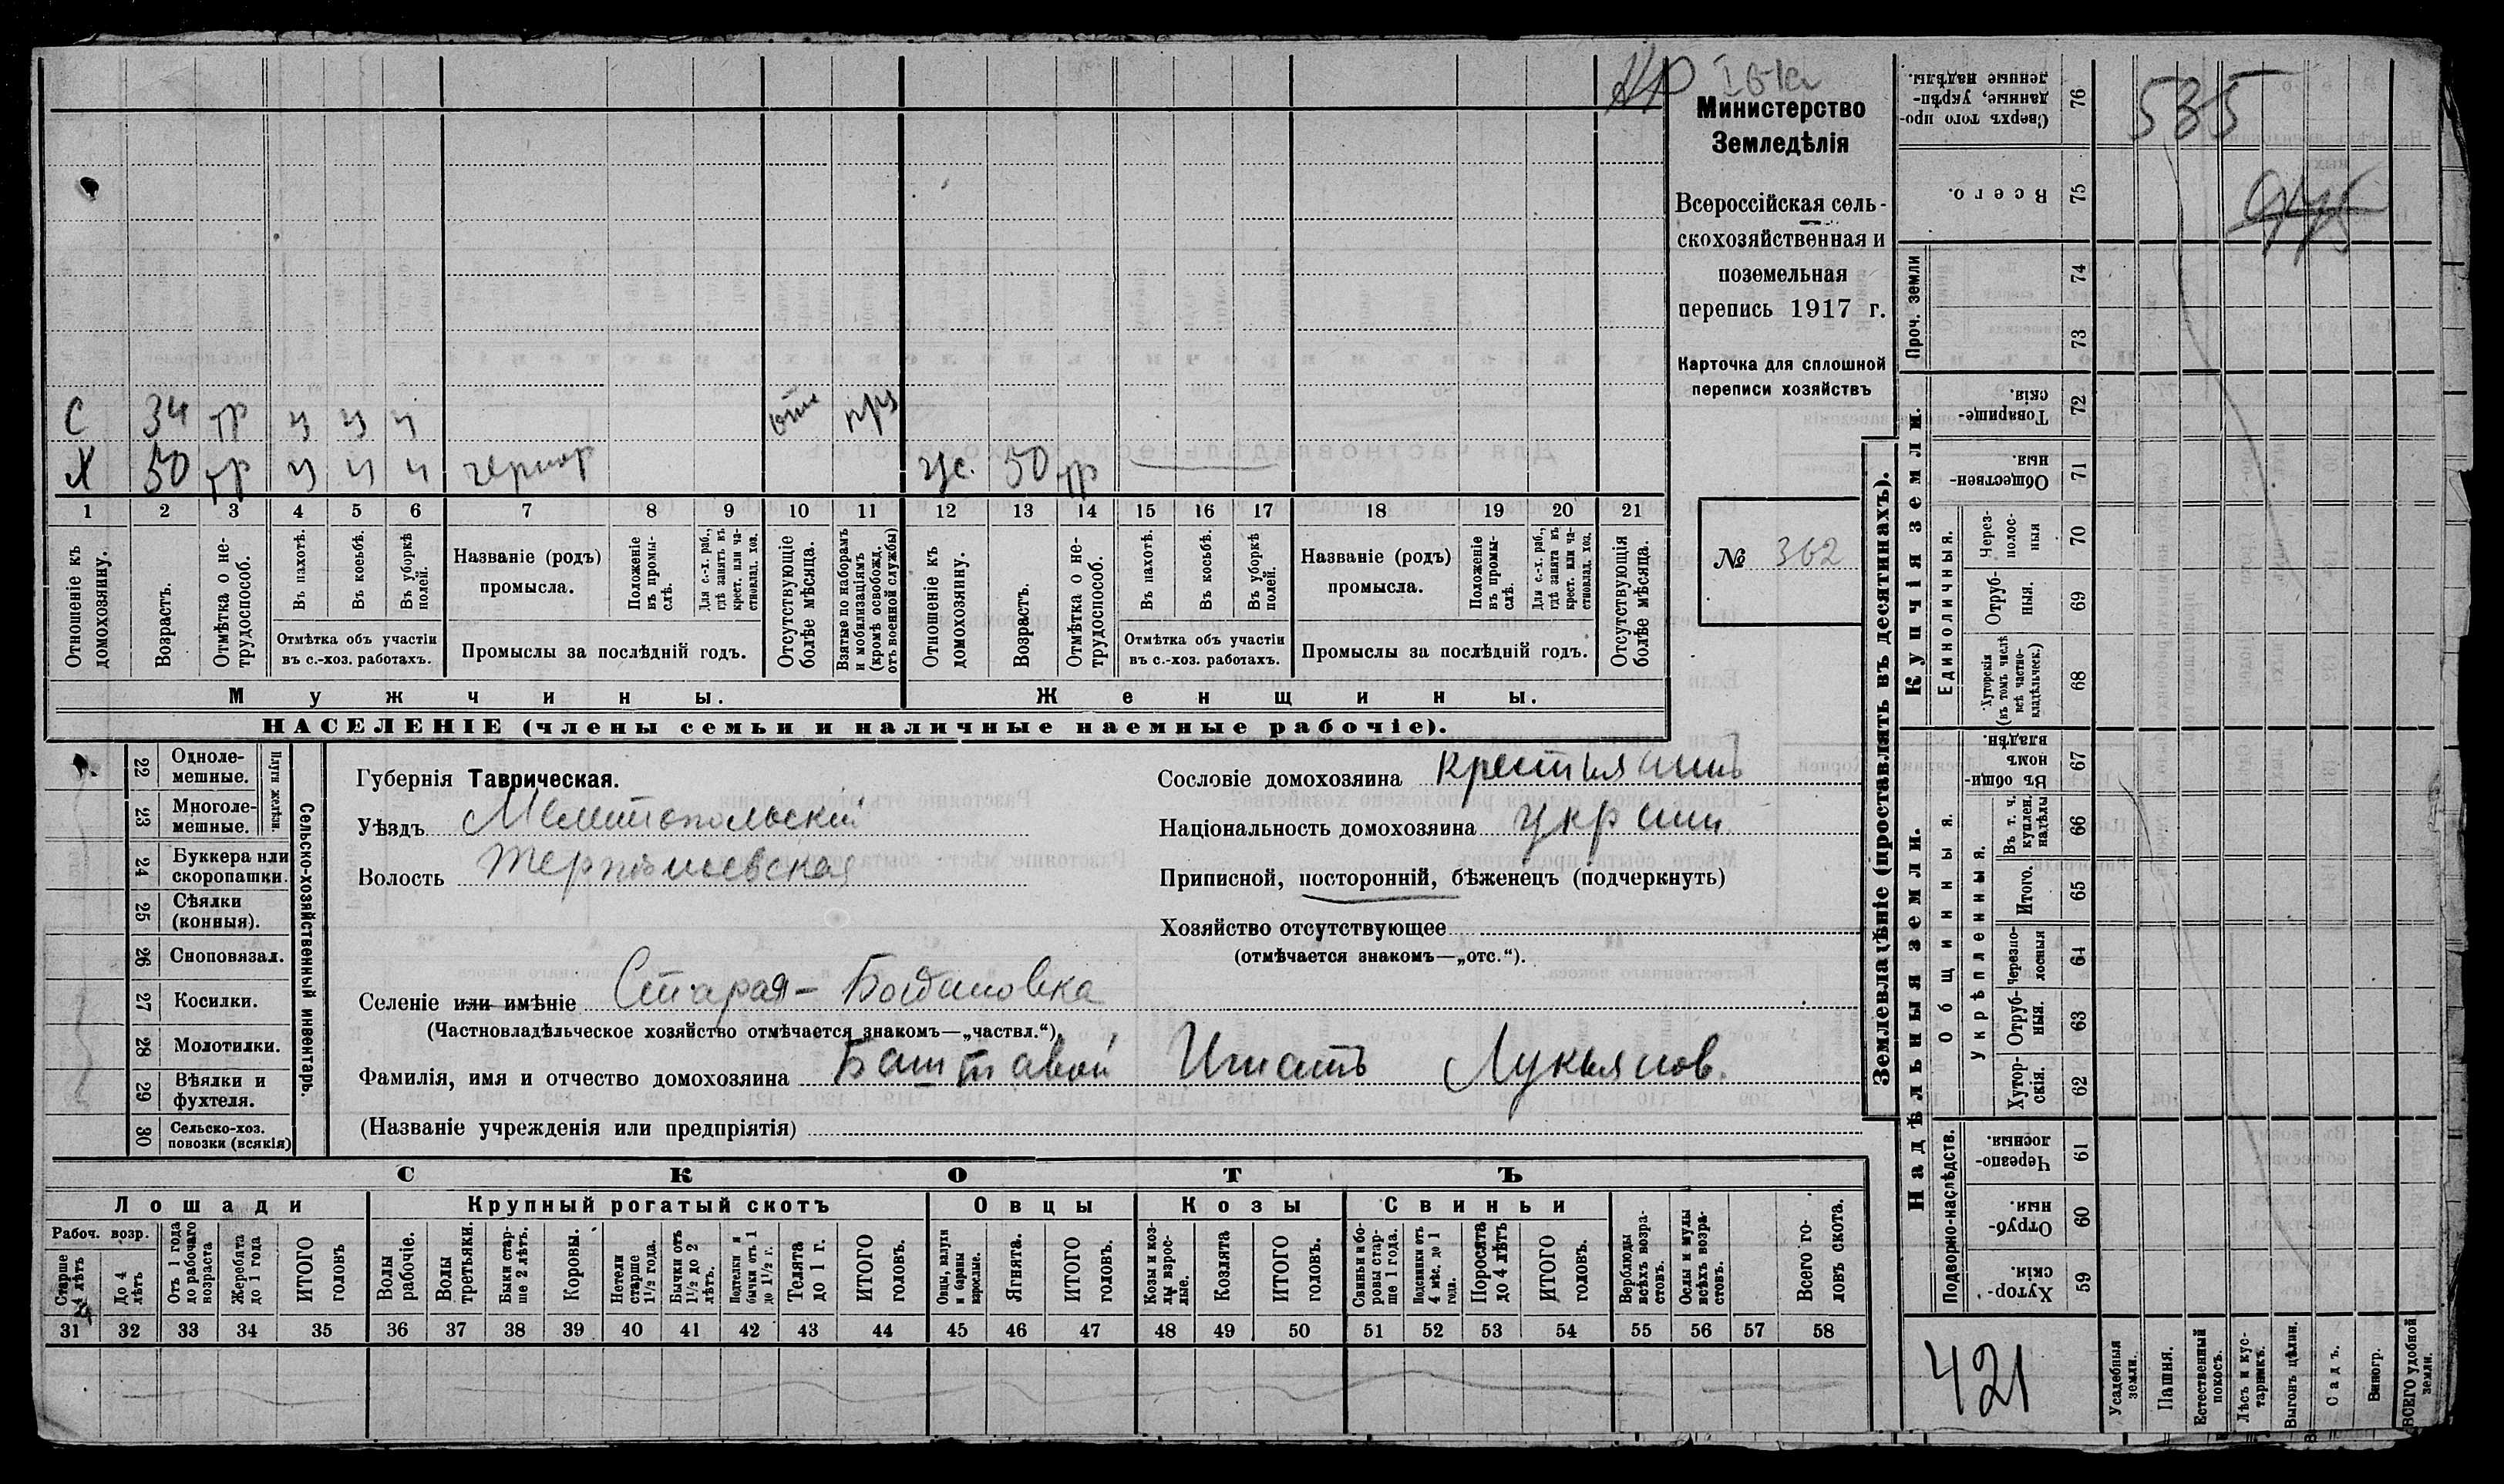 Министерство
Земледѣлія
Всероссійская сель-
скохозяйственная и
поземельная
перепись 1917 г.
Карточка для сплошной
переписи хозяйствъ
№ 362
С 34 тр ч ч ч отс
Х 50 тр ч ч ч 50 тр
1 2 3 4 5 6 7 8 9 10 11 12 13 14 15 16 17 18 19 20 21
Отношеніе къ домохозяину.
Возрастъ.
Отмѣтка о не-трудоспособ.
Въ пахотѣ.
Въ косьбѣ.
Въ уборкѣ полей.
Отмѣтка объ участіи
въ с.-хоз. работахъ.
Названіе (родъ)
промысла.
Положеніе въ промы-слѣ.
Для с.-х. раб., гдѣ занятъ въ крест. или ча-стновлад. хоз.
Промыслы за послѣдній годъ.
Отсутствующіе болѣе мѣсяца.
Взятые по наборамъ и мобилизаціямъ (кромѣ освобожд. отъ военной службы)
Отношеніе къ домохозяину.
Возрастъ.
Отмѣтка о не-трудоспособ.
Въ пахотѣ.
Въ косьбѣ.
Въ уборкѣ полей.
Отмѣтка объ участіи
въ с.-хоз. работахъ.
Названіе (родъ)
промысла.
Положеніе въ промы-слѣ.
Для с.-х. раб., гдѣ занята въ крест. или ча-стновлад. хоз.
Промыслы за послѣдній годъ.
Отсутствующія болѣе мѣсяца.
Мужчины. Женщины.
НАСЕЛЕНІЕ (члены семьи и наличные наемные рабочіе).
Сельско-хозяйственный инвентарь.
Плуги желѣзн.
22 Одноле-мешные.
23 Многоле-мешные.
24 Буккера или скоропашки.
25 Сѣялки (конныя).
26 Сноповязал.
27 Косилки.
28 Молотилки.
29 Вѣялки и фухтеля.
30 Сельско-хоз. повозки (всякія)
Губернія Таврическая.
Уѣздъ Мелитопольскій
Волость
Сословіе домохозяина крестьянинъ
Національность домохозяина
Приписной, посторонній, бѣженецъ (подчеркнуть)
Хозяйство отсутствующее
(отмѣчается знакомъ—„отс.“).
Селеніе или имѣніе Старая-Богдановка
(Частновладѣльческое хозяйство отмѣчается знакомъ—„частвл.“)
Фамилія, имя и отчество домохозяина Баштавой Игнатъ Лукьянов.
(Названіе учрежденія или предпріятія)
СКОТЪ
Лошади
Крупный рогатый скотъ
Овцы
Козы
Свиньи
Рабоч. возр.
Старше 4 лѣтъ
До 4 лѣтъ
Отъ 1 года до рабочаго возраста
Жеребята до 1 года
ИТОГО головъ
Волы рабочіе.
Волы третьяки.
Быки стар-ше 2 лѣтъ.
Коровы.
Нетели старше 1½ года.
Бычки отъ 1½ до 2 лѣтъ.
Подтелки и бычки отъ 1 до 1½ г.
Телята до 1 г.
ИТОГО головъ.
Овцы, валухи и бараны взрослые.
Ягнята.
ИТОГО головъ.
Козы и коз-лы взрос-лые.
Козлята
ИТОГО головъ.
Свиньи и бо-ровы стар-ше 1 года.
Подсвинки отъ 4 мѣс. до 1 года.
Поросята до 4 мѣс.
ИТОГО головъ.
Верблюды всѣхъ возра-стовъ.
Ослы и мулы всѣхъ возра-стовъ.
Всего го-ловъ скота.
31 32 33 34 35 36 37 38 39 40 41 42 43 44 45 46 47 48 49 50 51 52 53 54 55 56 57 58
Землевладѣніе (проставлять въ десятинахъ).
Купчія земли.
Надѣльныя земли.
535
76 Сверхъ того про-данные, укрѣп-ленные надѣлы.
75 Всего.
Проч. земли
74
73
72 Товарище-скія.
71 Обществен-ныя.
Единоличныя.
70 Через-полос-ныя
69 Отруб-ныя.
68 Хуторскія (въ томъ числѣ всѣ частно-владѣльческ.)
Общинныя.
67 Въ общи-номъ владѣн.
Укрѣпленныя.
66 Въ т. ч. куплен. надѣлы
65 Итого.
64 Черезпо-лосныя
63 Отруб-ныя.
62 Хутор-скія.
Подворно-наслѣдств.
61 Черезпо-лосныя.
60 Отруб-ныя.
59 Хутор-скія.
421
Усадебныя земли.
Пашня.
Естественный покосъ.
Лѣсъ и кус-тарникъ.
Выгонъ цѣлин.
Садъ.
Виногр.
ВСЕГО удобной земли.